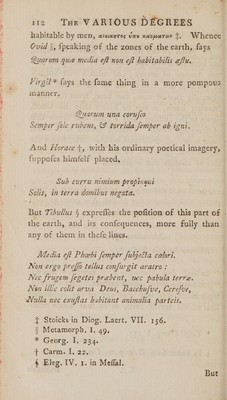 112 THE VARIOUS DEGREES
habitable by men, αοικητος ὑπο καυματων ‡. Whence
Ovid ‖, speaking of the zones of the earth, ſays
Quarum quæ media eſt non eſt habitabilis æſtu.
Virgil * ſays the ſame thing in a more pompous
manner.
Quarum una coruſco
Semper ſole rubens, & torrida ſemper ab igni.
And Horace †, with his ordinary poetical imagery,
ſuppoſes himſelf placed,
Sub curru nimium propinqui
Solis, in terra domibus negata.
But Tibullus § expreſſes the poſition of this part of
the earth, and its conſequences, more fully than
any of them in theſe lines.
Media eſt Phœbi ſemper ſubjecta calori.
Non ergo preſſo tellus conſurgit aratro :
Nec frugem ſegetes præbent, nec pabula terræ.
Non illic colit arva Deus, Bacchuſve, Cereſve,
Nulla nec exuſtas habitant animalia parteis.
‡ Stoicks in Diog. Laert. VII. 156.
‖ Metamorph. I. 49.
* Georg. I. 234.
† Carm. I. 22.
§ Eleg. IV. 1. in Meſſal.
But